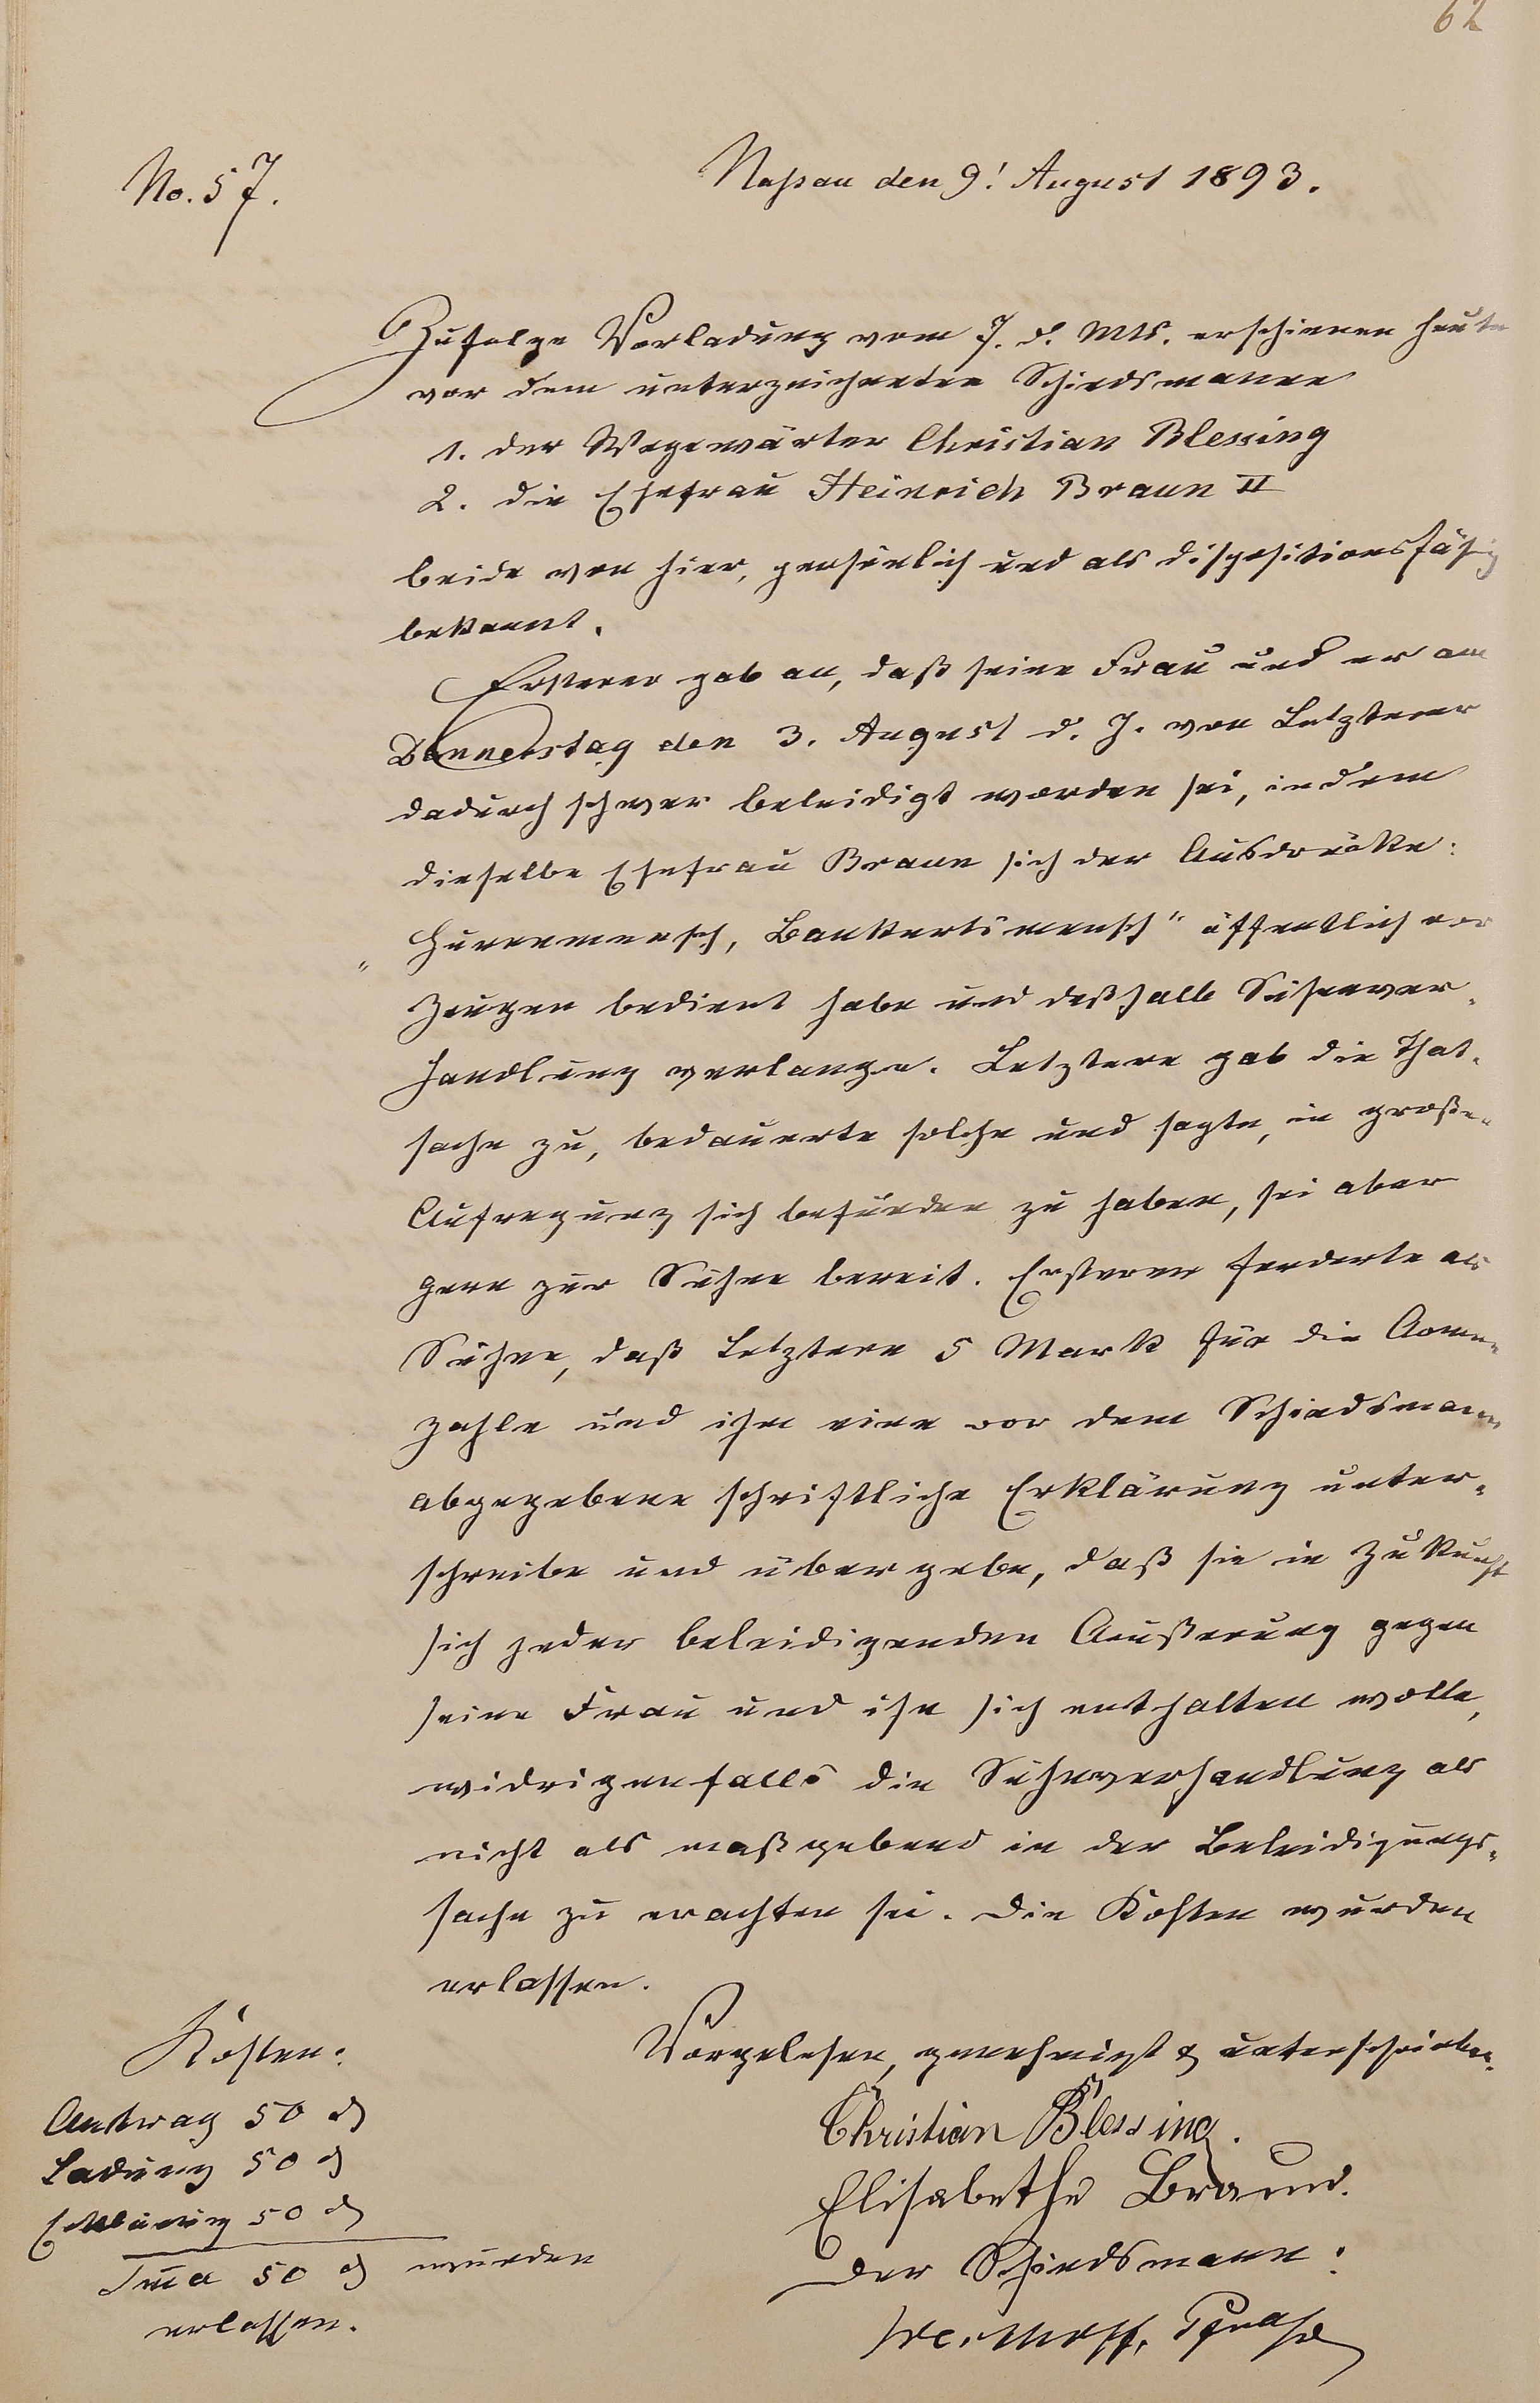 62
No. 57.
Nassau den 9. August 1893.
Zufolge Vorladung vom 7. d. Mts. erschienen heute
vor dem unterzeichneten Schiedsmanne
1. der Wegewärter Christian Blessing
2. die Ehefrau Heinrich Braun II
beide von hier, persönlich und als dispositionsfähig
bekannt.
Ersterer gab an, daß seine Frau und er am
Donnerstag den 3. August d. J. von Letzterer
dadurch schwer beleidigt worden sei, indem
dieselbe Ehefrau Braun sich der Ausdrücke:
„Hurenmensch, Bankertsmensch" öffentlich vor
Zeugen bedient habe und deßhalb Sühnever-
handlung verlange. Letztere gab die That-
sache zu, bedauerte solche und sagte, in großer
Aufregung sich befunden zu haben, sei aber
gern zur Sühne bereit. Ersterer forderte als
Sühne, daß Letztere 5 Mark für die Armen
zahle und ihm eine vor dem Schiedsmann
abgegebene schriftliche Erklärung unter-
schreibe und übergebe, daß sie in Zukunft
sich jeder beleidigenden Äußerung gegen
seine Frau und ihn sich enthalten wolle,
widrigenfalls die Sühneverhandlung als
nicht als maßgebend in der Beleidigungs-
sache zu erachten sei. Die Kosten wurden
erlassen.
Vorgelesen, genehmigt & unterschrieben.
Christian Blessing.
Elisabethe Braun.
Der Schiedsmann:
Kosten:
Antrag 50 ₰
Ladung 50 ₰
Erklärung 50 ₰
Sma 50 ₰ wurden
erlassen.